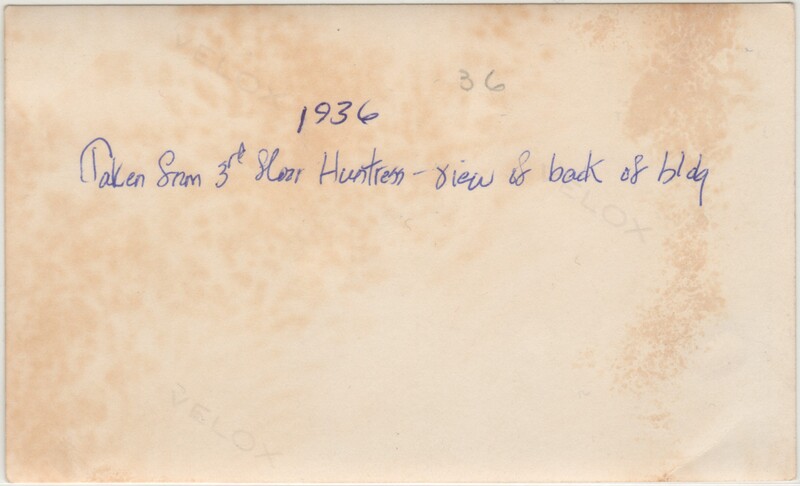 VELOX
36
1936
Taken from 3rd floor Huntress - view of back of bldg
VELOX
VELOX